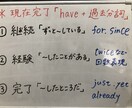 * 現在完了「have + 過去分詞」
① 継続「ずっと~している」 for, since
② 経験「~したことがある」 twiceなど
回数表現
③ 完了「~したところだ」 just, yet
already